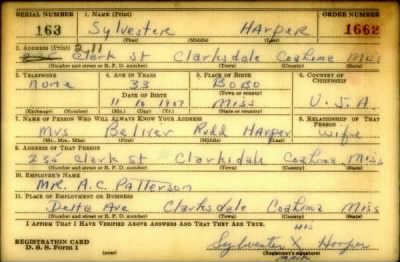 SERIAL NUMBER 1. NAME (Print) ORDER NUMBER
163 Sylvester Harper 1662
(First) (Middle) (Last)
2. ADDRESS (Print) 211
Clark St Clarksdale Coahoma Miss
(Number and street or R. F. D. number) (Town) (County) (State)
3. TELEPHONE 4. AGE IN YEARS 5. PLACE OF BIRTH 6. COUNTRY OF CITIZENSHIP
None 33 Bobo
DATE OF BIRTH (Town or county)
11 10 1907 Miss U.S.A.
(Exchange) (Number) (Mo.) (Day) (Yr.) (State or country)
7. NAME OF PERSON WHO WILL ALWAYS KNOW YOUR ADDRESS 8. RELATIONSHIP OF THAT PERSON
Mrs Beliver Rudd Harper wife
(Mr., Mrs., Miss) (First) (Middle) (Last)
9. ADDRESS OF THAT PERSON
Clark St Clarksdale Coahoma Miss
(Number and street or R. F. D. number) (Town) (County) (State)
10. EMPLOYER'S NAME
Mr. A.C. Patterson
11. PLACE OF EMPLOYMENT OR BUSINESS
Delta Ave Clarksdale Coahoma Miss
(Number and street or R. F. D. number) (Town) (County) (State)
I AFFIRM THAT I HAVE VERIFIED ABOVE ANSWERS AND THAT THEY ARE TRUE.
his
REGISTRATION CARD Sylvester X Harper
D. S. S. Form 1 (over) (Registrant's signature)
mark